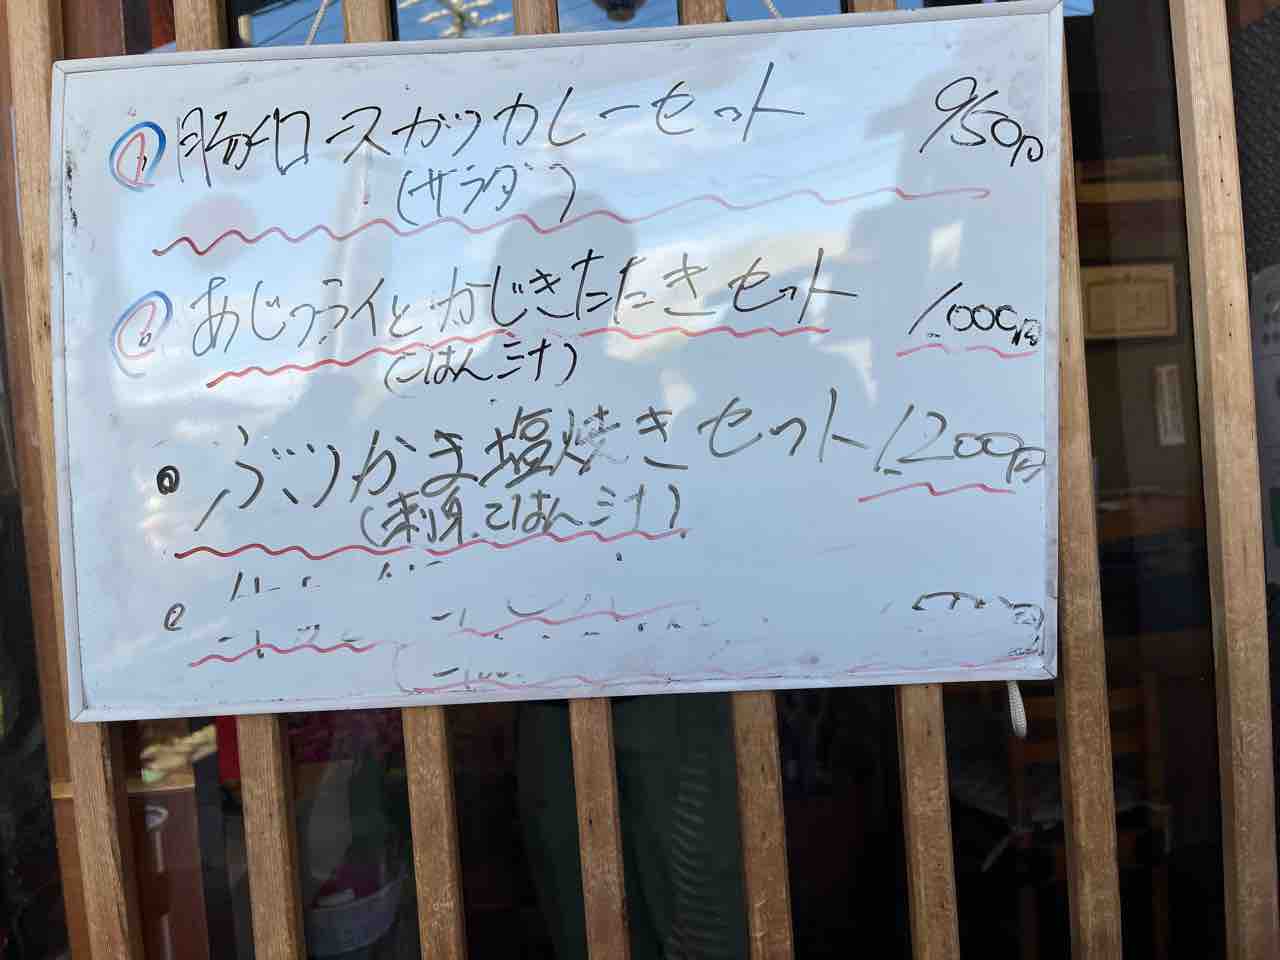 ① 豚ロースカツカレーセット 950円
(サラダ)
② あじフライとかじきたたきセット 1000円
(ごはん 汁)
ぶりかま塩焼きセット 1200円
(刺身.ごはん 汁)